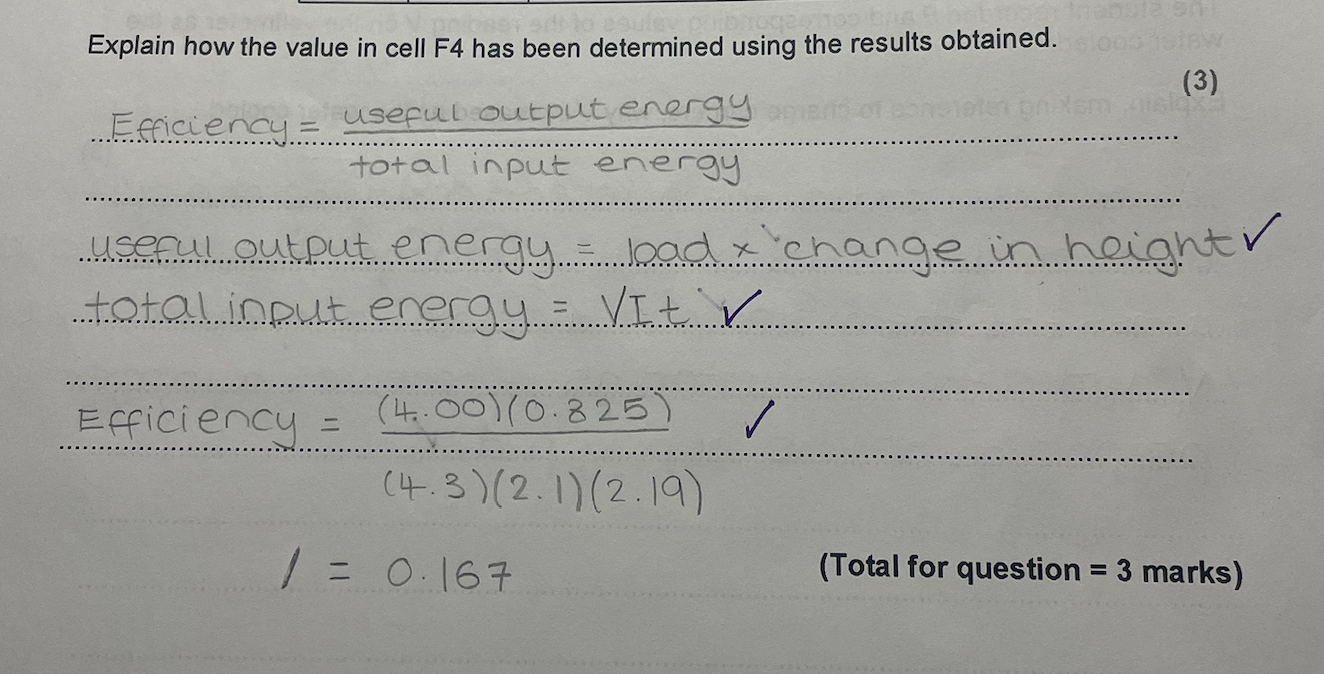 Explain how the value in cell F4 has been determined using the results obtained.
(3)
Efficiency = useful output energy
total input energy
useful output energy = load × change in height ✓
total input energy = VIt ✓
Efficiency = (4.00)(0.825) ✓
(4.3)(2.1)(2.19)
/ = 0.167
(Total for question = 3 marks)